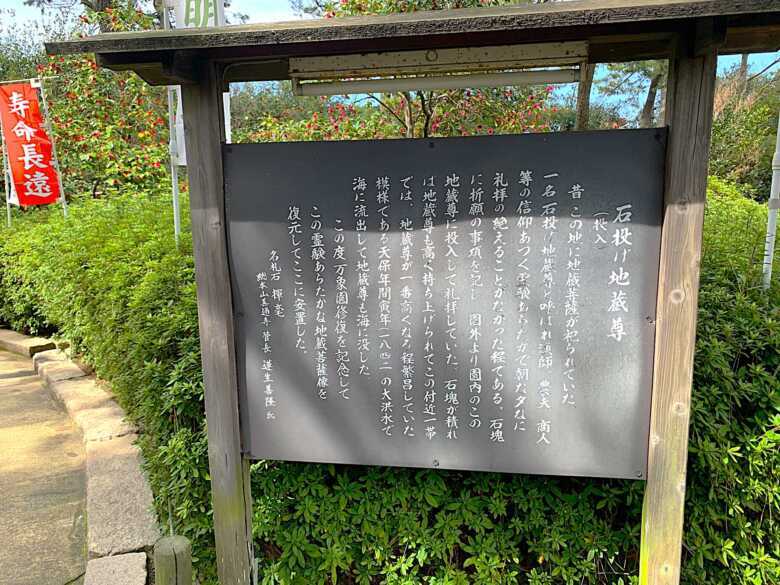 石投げ地蔵尊
(投入)
昔 この地に地蔵菩薩が祀られていた。
一名石投げ地蔵尊と呼ばれ漁師 農夫 商人
等の信仰あつく霊験あらたかで朝な夕なに
礼拝の絶えることがなかった程である。石塊
に祈願の事項を記し 園外より園内のこの
地蔵尊に投入して礼拝していた。石塊が積れ
ば地蔵尊も高く持ち上げられてこの付近一帯
では、地蔵尊が一番高くなる程繁昌していた
模様である天保年間寅年一八四二の大洪水で
海に流出して地蔵尊も海に没した
この度 万象園修復を記念して
この霊験あらたかな地蔵菩薩像を
復元してここに安置した。
名札石 揮毫
総本山善通寺 管長 蓮生善隆 氏
寿命長遠
明